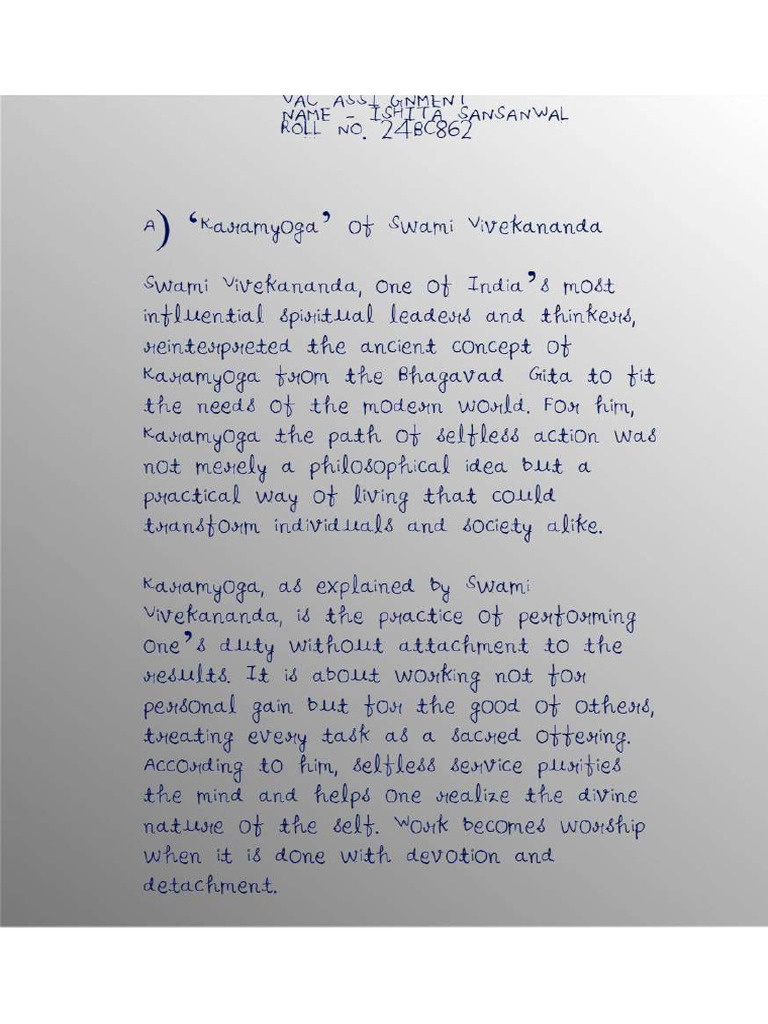 VAC ASSIGNMENT
NAME - ISHITA SANSANWAL
ROLL NO. 24BC862
A) ‘Karamyoga’ of Swami Vivekananda
Swami Vivekananda, one of India’s most
influential spiritual leaders and thinkers,
reinterpreted the ancient concept of
Karamyoga from the Bhagavad Gita to fit
the needs of the modern world. For him,
Karamyoga the path of selfless action was
not merely a philosophical idea but a
practical way of living that could
transform individuals and society alike.
Karamyoga, as explained by Swami
Vivekananda, is the practice of performing
one’s duty without attachment to the
results. It is about working not for
personal gain but for the good of others,
treating every task as a sacred offering.
According to him, selfless service purifies
the mind and helps one realize the divine
nature of the self. Work becomes worship
when it is done with devotion and
detachment.